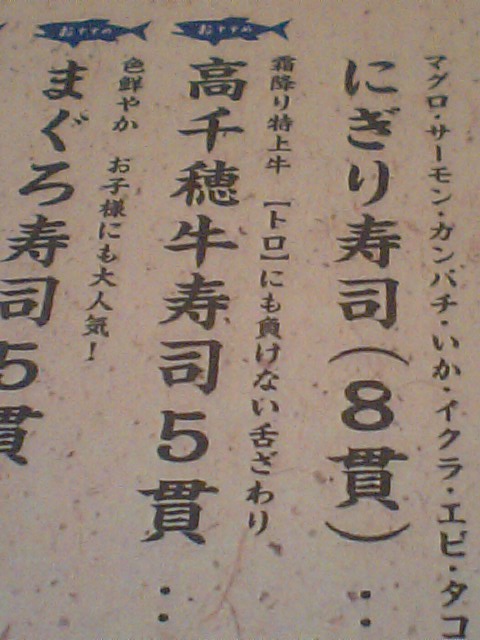 マグロ・サーモン・カンパチ・いか・イクラ・エビ・タコ
にぎり寿司(8貫)‥
霜降り特上牛 [トロ]にも負けない舌ざわり
おすすめ
高千穂牛寿司5貫‥
色鮮やか お子様にも大人気!
おすすめ
まぐろ寿司5貫